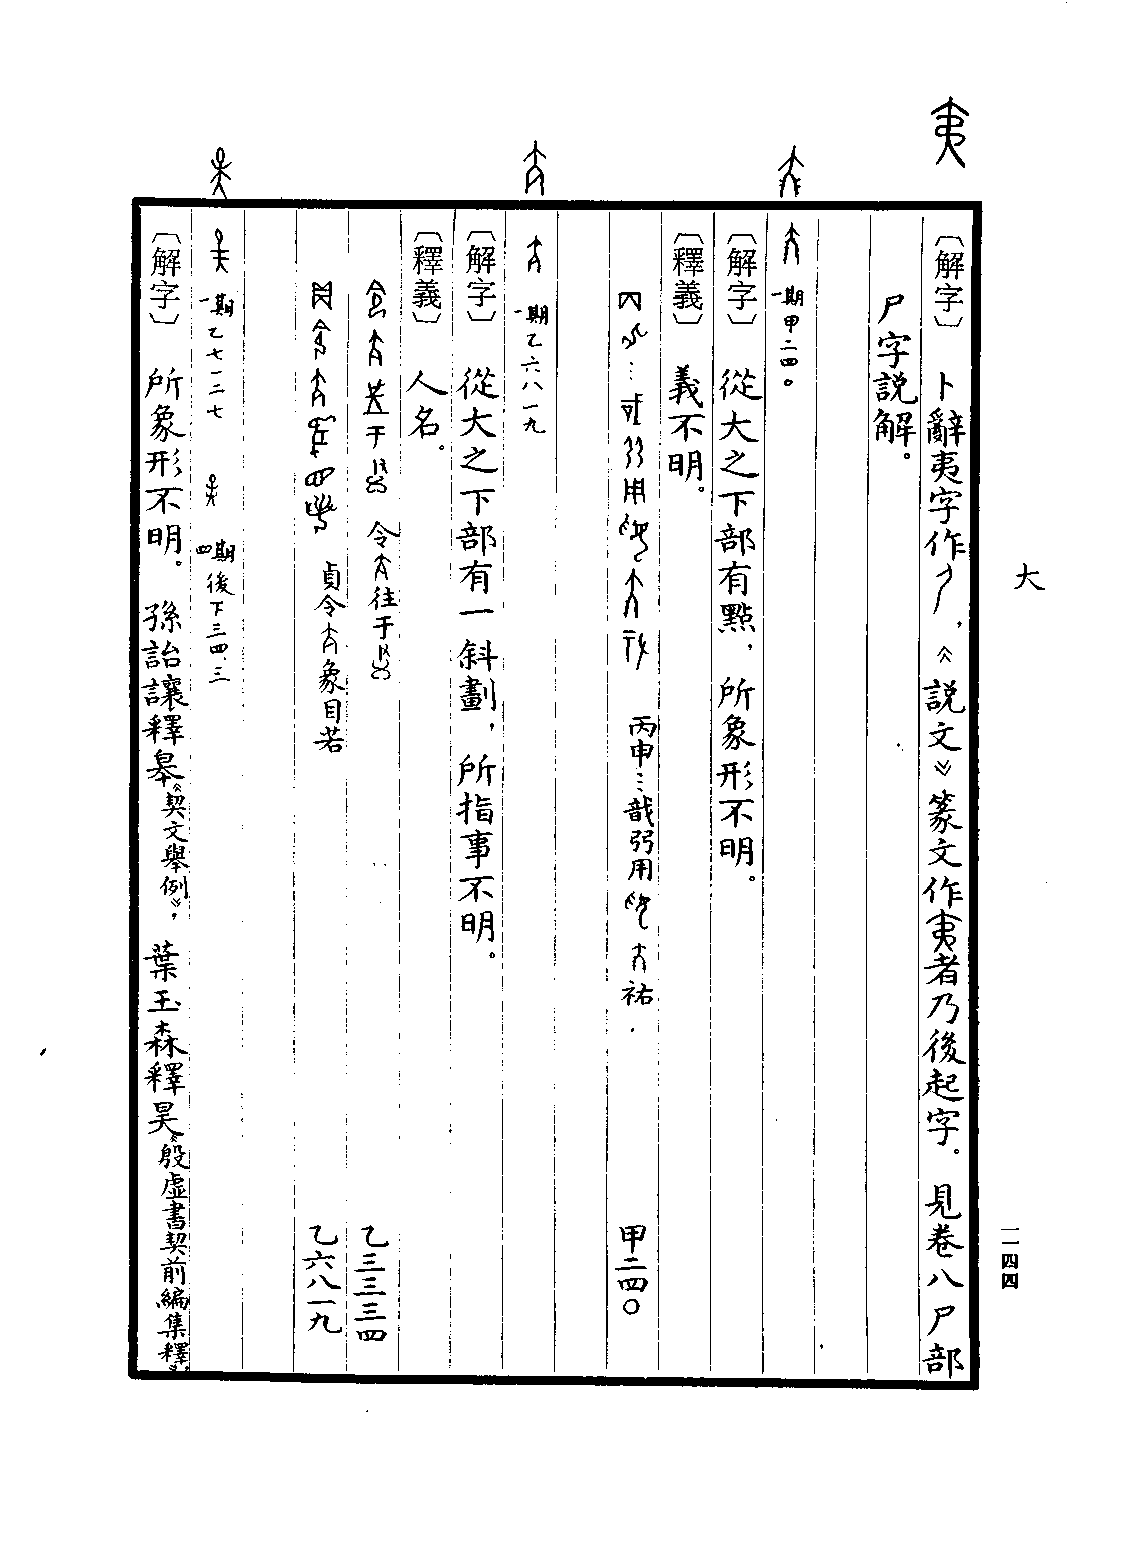 大
一一四四
夷
〔解字〕 卜辭夷字作，《説文》篆文作夷者乃後起字。見卷八尸部
尸字説解。
一期甲二四〇
〔解字〕 從大之下部有點，所象形不明。
〔釋義〕 義不明。
丙申…哉弜用祐 甲二四〇
一期乙六八一九
〔解字〕 從大之下部有一斜劃，所指事不明。
〔釋義〕 人名。
令往于 乙三三三四
貞令象目若 乙六八一九
一期乙七一二七 四期後下三四.三
〔解字〕 所象形不明。孫詒讓釋皋《契文舉例》，葉玉森釋昊《殷虛書契前編集釋》，